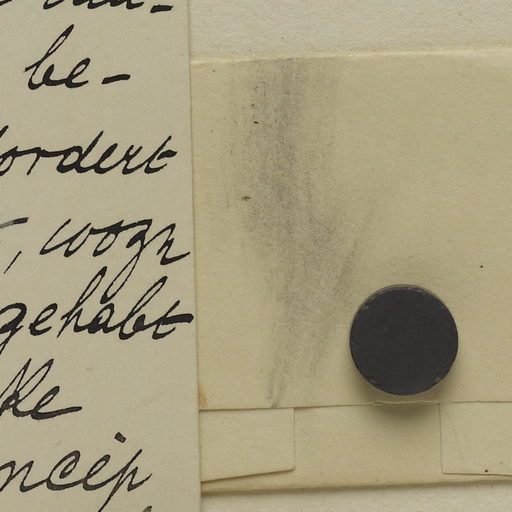 be-
fordert
, wozu
gehabt
ke
ncip